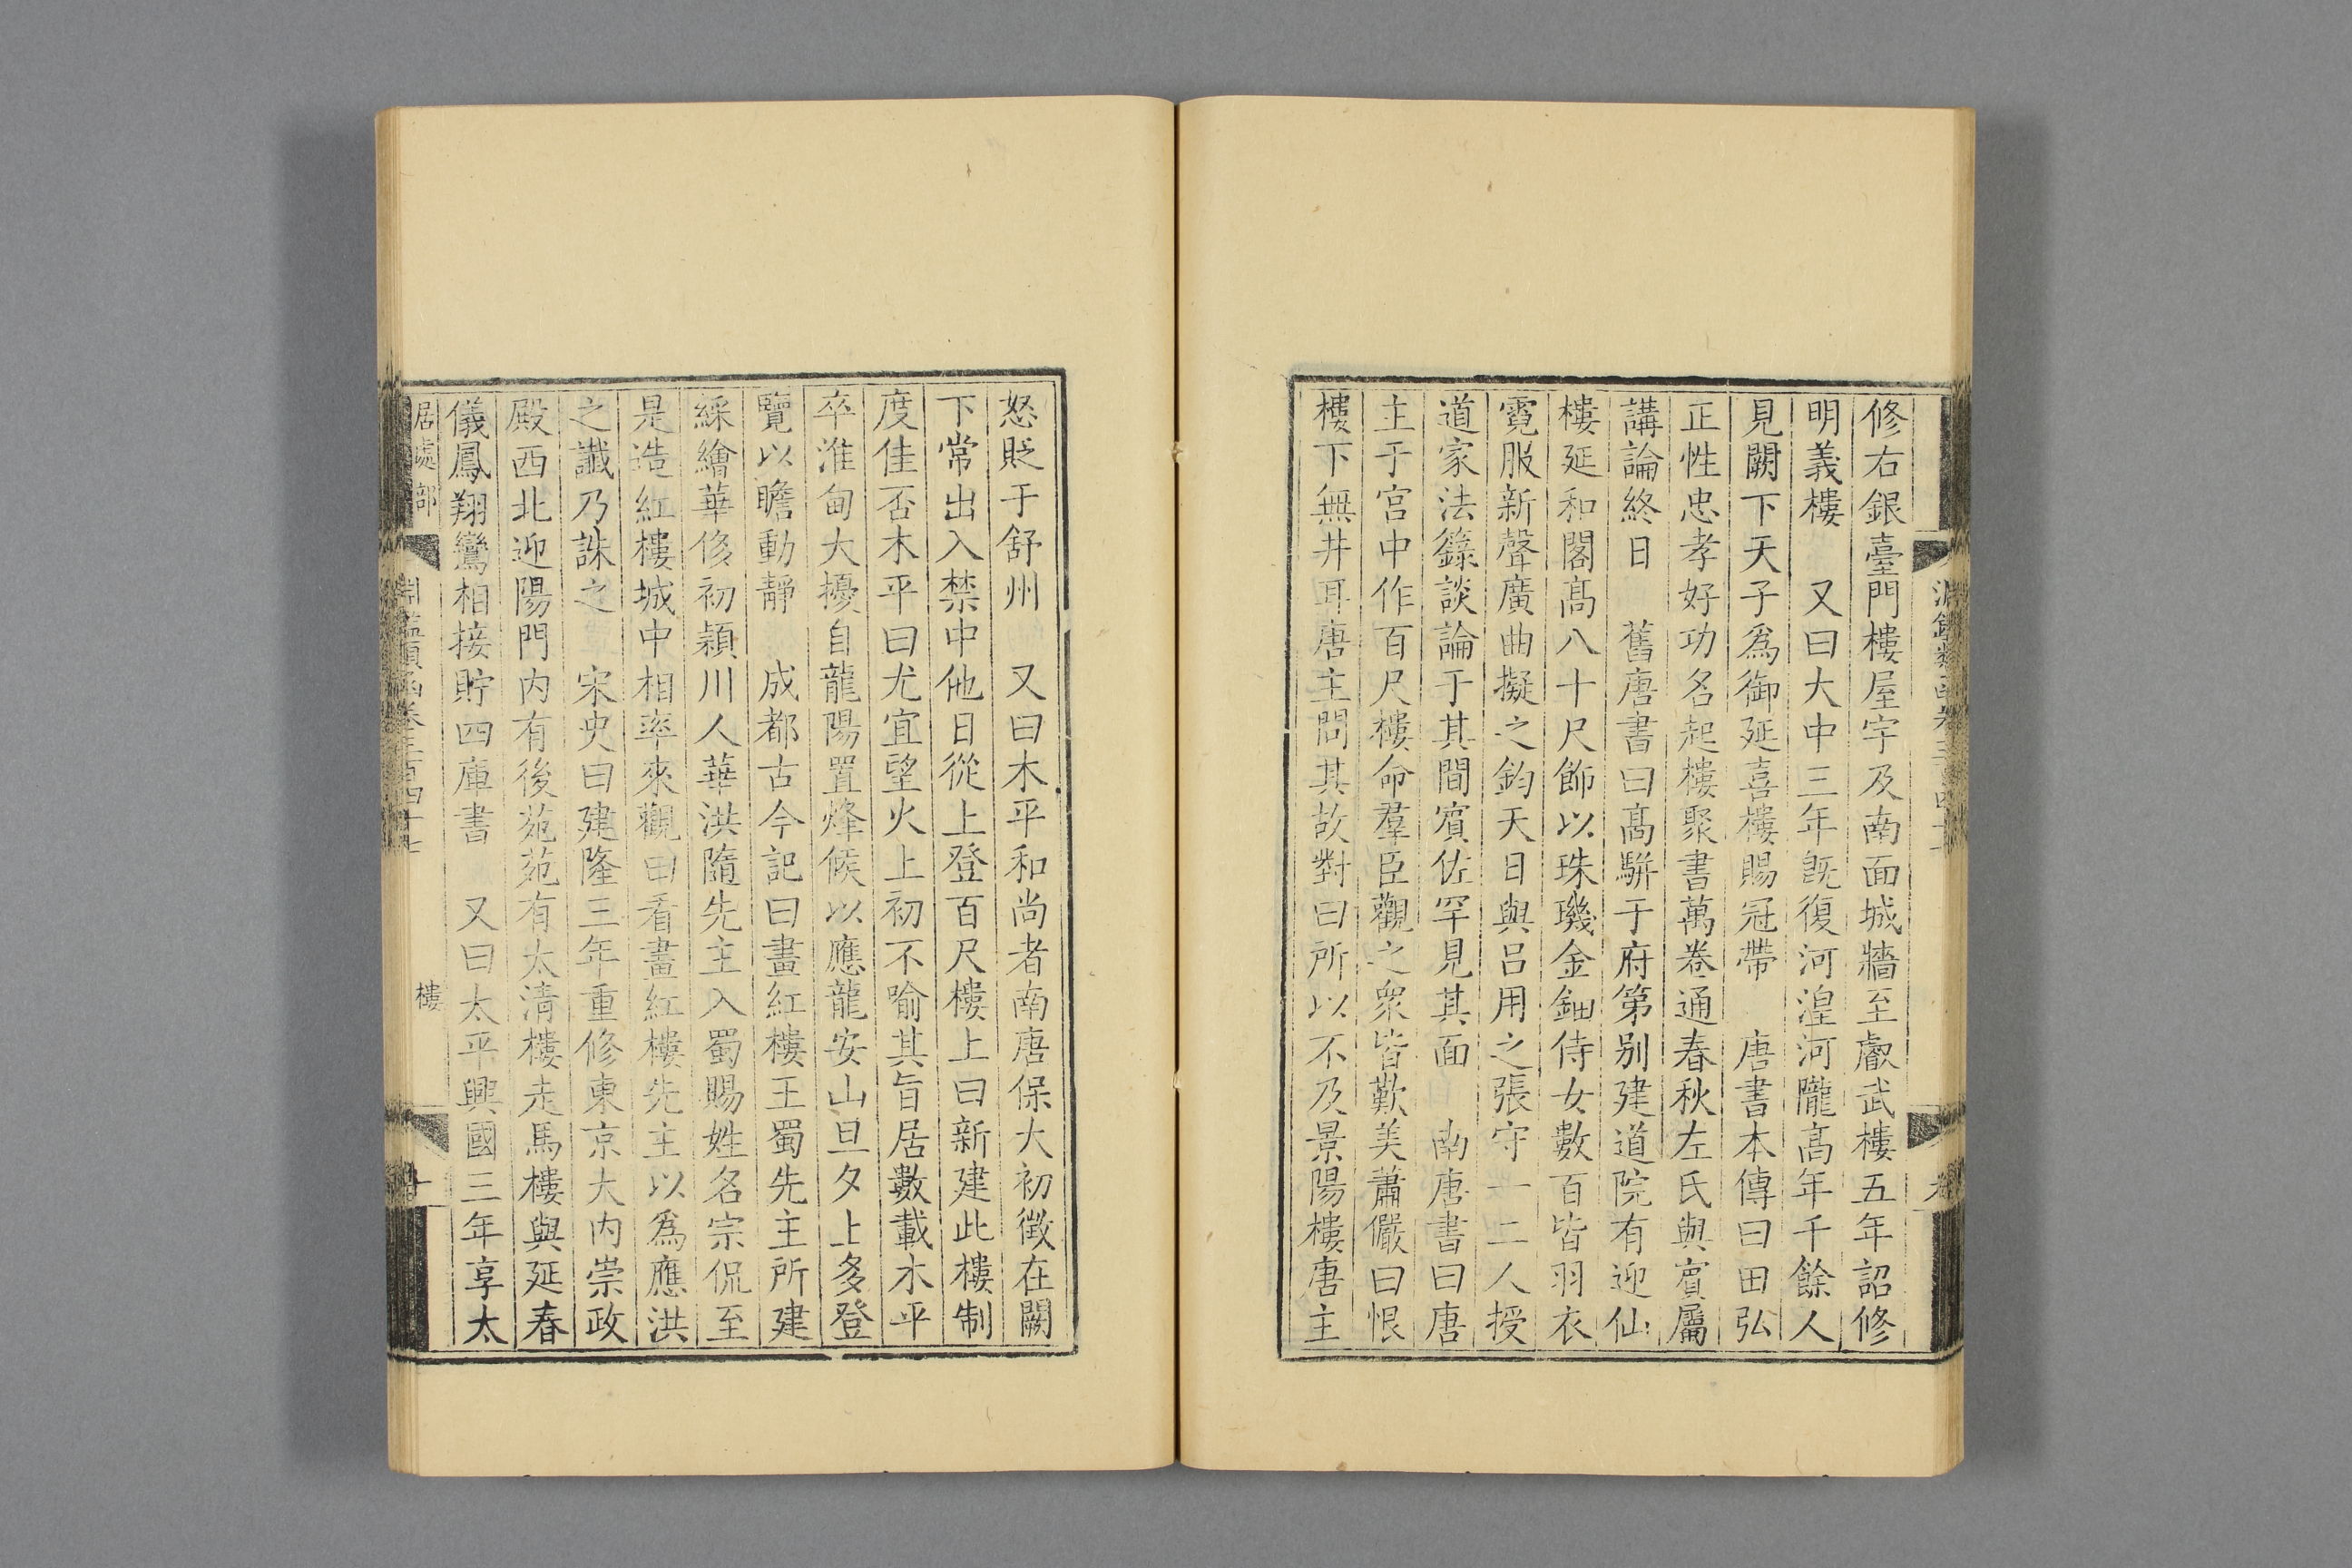 修右銀臺門樓屋宇及南面城牆至叡武樓五年詔修
明義樓 又曰大中三年旣復河湟河隴高年千餘人
見闕下天子爲御延喜樓賜冠帶 唐書本傳曰田弘
正性忠孝好功名起樓聚書萬卷通春秋左氏與賓屬
講論終日 舊唐書曰高駢于府第别建道院有迎仙
樓延和閣高八十尺飾以珠璣金鈿侍女數百皆羽衣
霓服新聲廣曲擬之鈞天日與呂用之張守一二人授
道家法籙談論于其間賓佐罕見其面 南唐書曰唐
主于宫中作百尺樓命羣臣觀之衆皆歎美蕭儼曰恨
樓下無井耳唐主問其故對曰所以不及景陽樓唐主
怒貶于舒州 又曰木平和尚者南唐保大初徴在闕
下常出入禁中他日從上登百尺樓上曰新建此樓制
度佳否木平曰尤宜望火上初不喻其旨居數載木平
卒淮甸大擾自龍陽置烽候以應龍安山旦夕上多登
覽以瞻動靜 成都古今記曰畫紅樓王蜀先主所建
綵繪華侈初穎川人華洪隨先主入蜀賜姓名宗侃至
是造紅樓城中相率來觀曰看畫紅樓先主以爲應洪
之讖乃誅之 宋史曰建隆三年重修東京大内崇政
殿西北迎陽門内有後苑苑有太清樓走馬樓與延春
儀鳳翔鸞相接貯四庫書 又曰太平興國三年享太
居處部
淵鑑類函卷三百四十七
樓
十